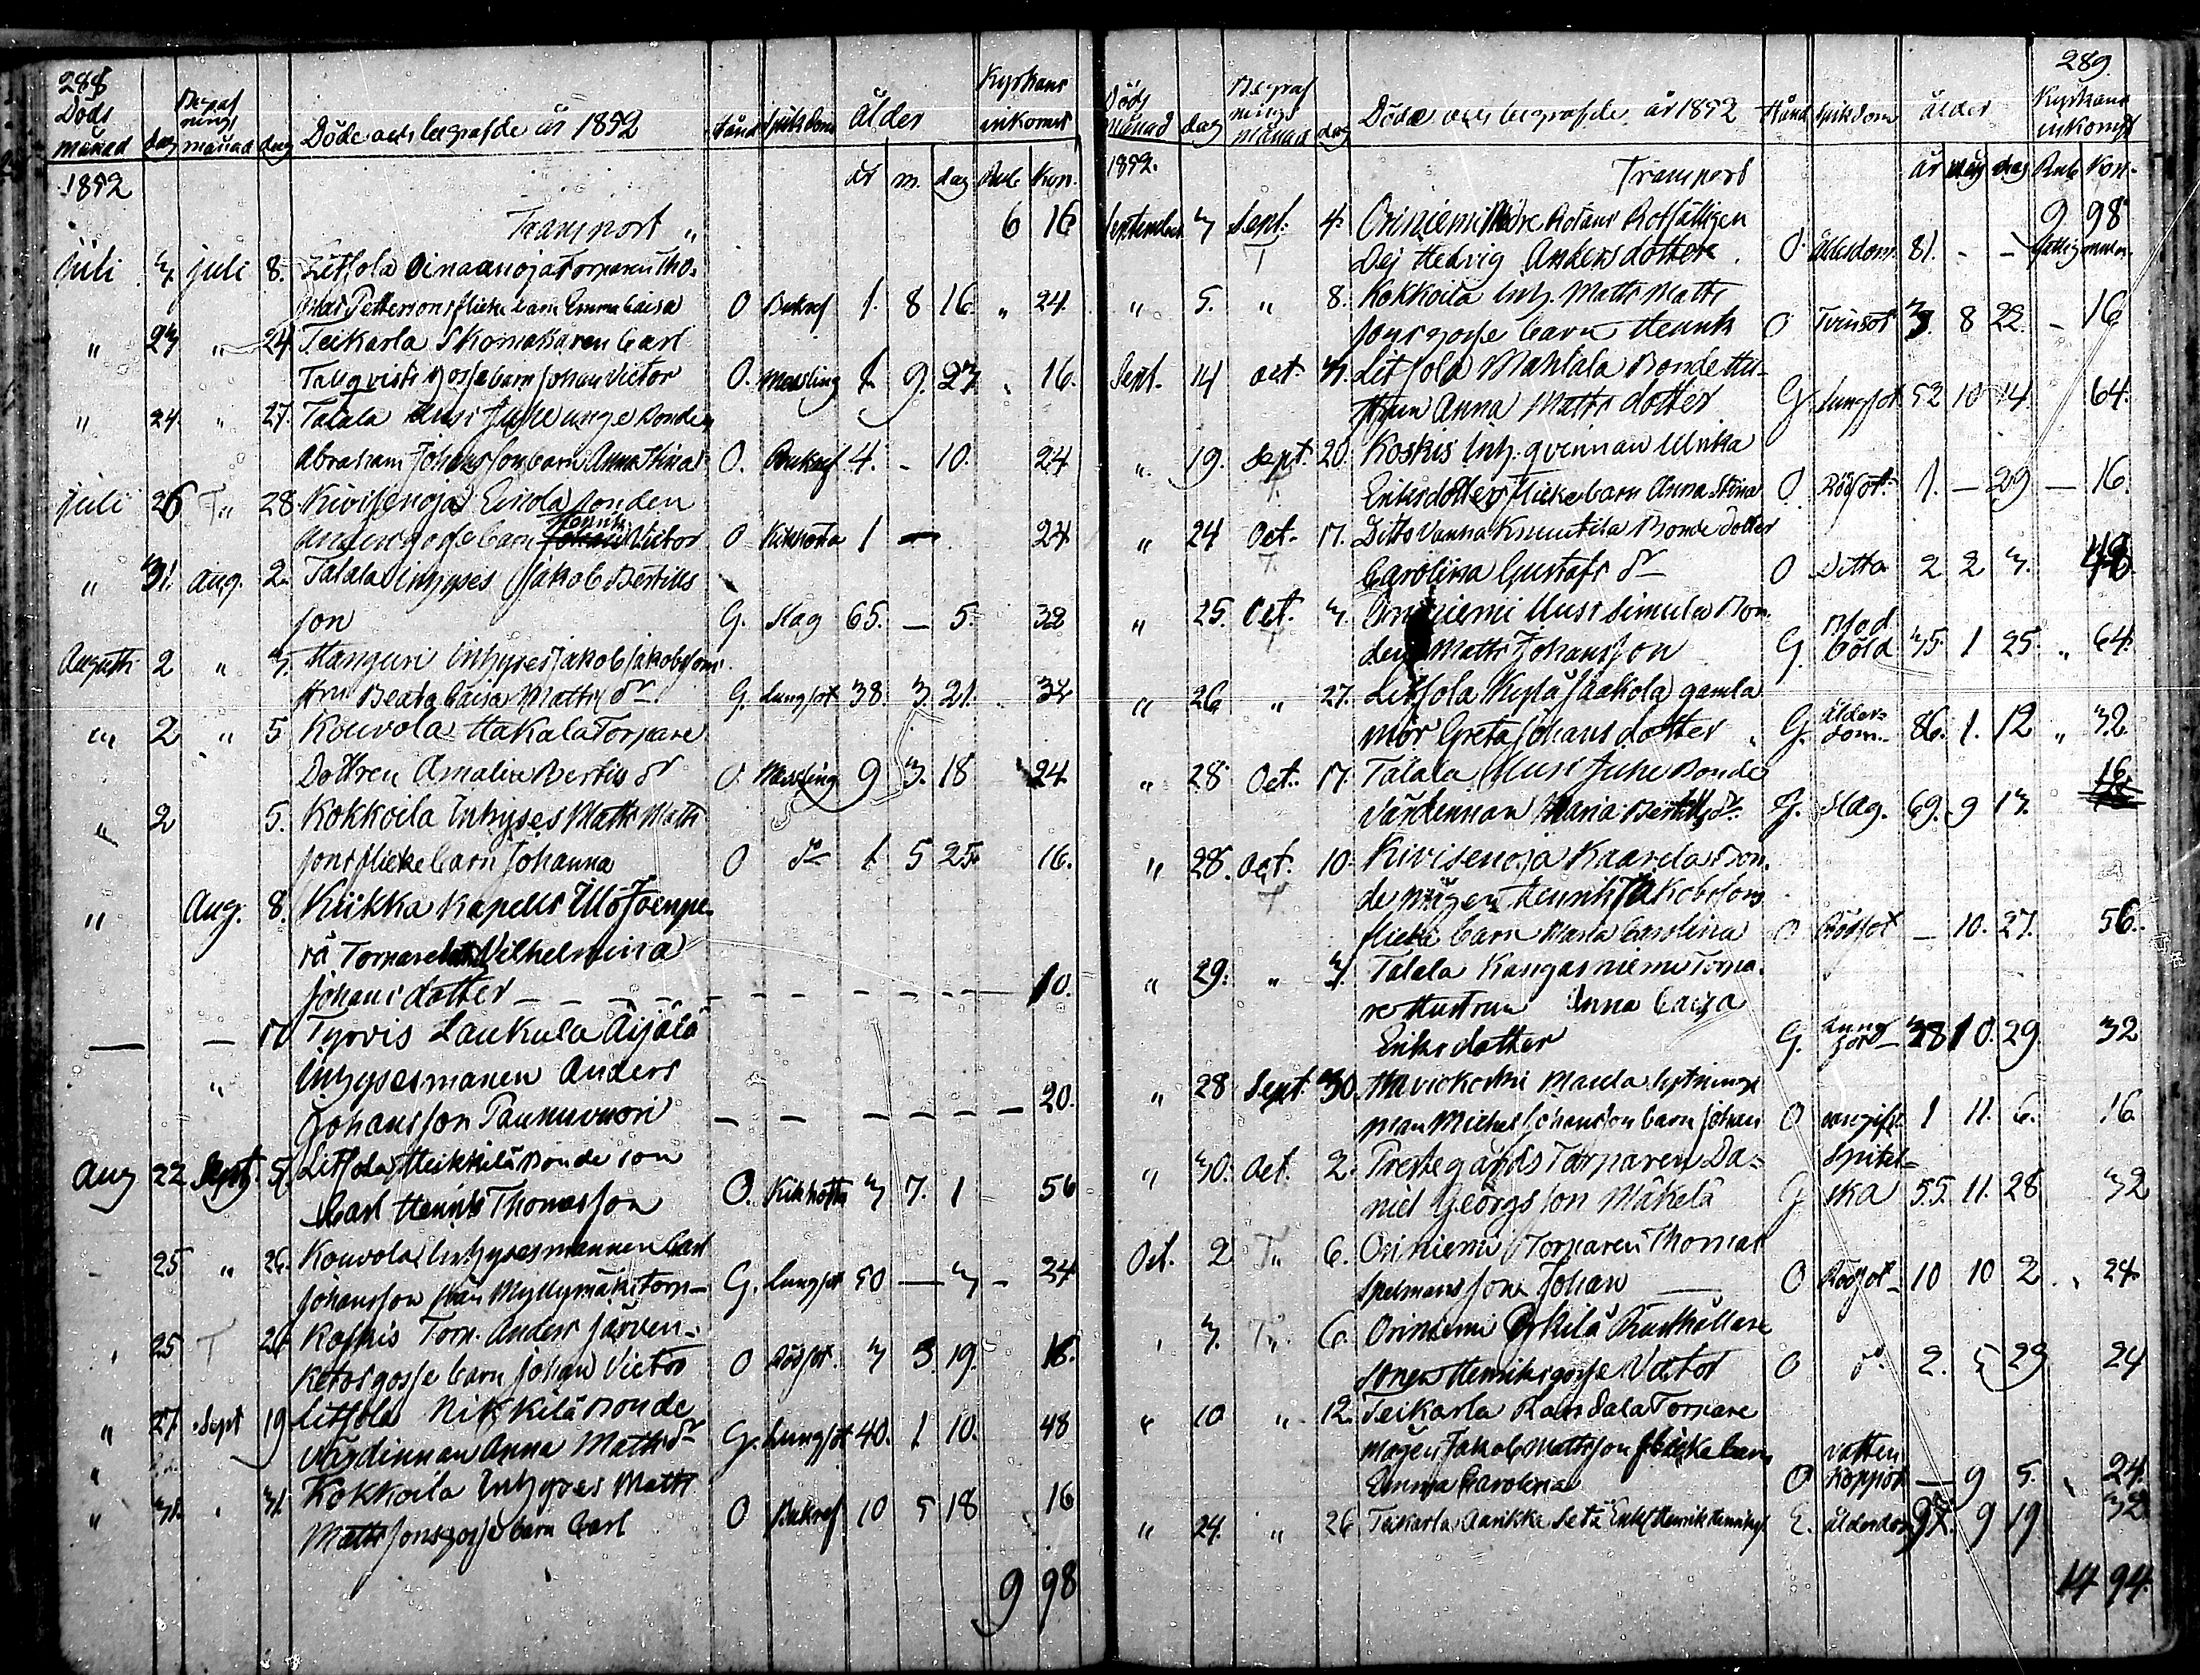 288
Döds månad dag Begrafnings månad dag Döde och begrafde år 1852 Stånd Sjukdom ålder Kyrkans inkomst
1852 år m. dag Rub Kop.
Transport " 6 16
Juli 3. Juli 8. Litsola Oinaanoja Torparen Tho-
mas Petterssons flicke barn Emma Caisa O Bukref 1. 8 16. " 24.
" 23 " 24 Teikarla Skomakaren Carl
Tallqvists gosse barn Johan Victor O. Messling 1. 9. 27. 16.
" 24. " 27. Talala Uusi Juhe unge Bonden
Abraham Johansson barn Anna Stina O. Bukref 4. - 10. 24
Juli 26 T " 28. Kivisenoja Einola Bonden
Anders gosse barn Henrik Victor O Kikhosta 1 — 24
" 31. Aug. 2. Talala Inhyses Jakob Bertils
son G. Slag 65. — 5. 32
Augusti 2 " 3. Hanguri Inhyses Jakob Jakobssons
Hru Beata Caisa Matts dr. G. Lungsot 38. 3. 21. 32
" 2 " 5 Kouvola Hakala Torpare
Dottren Amalia Bertils dr O. Messling 9 3. 18 24
" 2 5. Kokkoila Inhyses Matts Matts
sons flicke barn Johanna O do 1 5 25. 16.
" Aug. 8. Kiikka Kapells
rä Torpare Vilhelmina
Johans dotter — — — — — — — — 10.
— — 10 Tyrvis Laukula Äijälä
" Inhysesmanen Anders
Johansson Paunuvuori — — — — — — — 20.
Aug 22 Sept. 5. Litsola Heikkilä Bonde son
Carl Henrik Thomasson O. Kikhosta 3 7. 1 56
- 25 " 26. Kouvola Inhysesmannen Carl
Johansson från Myllymäki Torp— G. Lungsot 50 — 3 — 24
" 25 T 26 Koskis Torp. Anders Järven-
Retos gosse barn Johan Victor O Rödsot. 3 3. 19. 16.
" 27. Sept 19 Litsola Nikkilä Bonde
Värdinnan Anna Matts dr G. Lungsot 40. 1 10. 48
" 31. " 31. Kokkoila Inhyses Matts
Mattssons gosse barn Carl O Bukref 10 5 18 16
9 98
289.
Döds månad dag Begrafnings månad dag Döde och begrafde år 1852 Stånd Sjukdom ålder Kyrkans inkomst
1852. Transport år mån dag Rub Kop.
September 3 Sept. 4. Oriniemi Rotans Rotfattigen 9 98
T Dej Hedvig Anders dotter. O ålderdom 81. - -
" 5. " 8. Kokkoila Inh. Matts Matts
sons gosse barn Henrik O Tvinsot 3. 8 22. — 16
Sept. 14 Oct. 3. Litsola Mahlala Bonde Hu-
strun Anna Matts dotter G Lungsot 52 10 14. 64.
" 19. Sept. 20. Koskis Inh. qvinnan Ulrika
T. Eriksdotters flicke barn Anna Stina O. Rödsot. 1. — 29 — 16.
" 24 Oct. 17. Ditto Vanna Knuutila Bonde Dotter
T. Carolina Gustafs dr — O Ditta 2 2 3. 48.
" 25. Oct. 3. Oriniemi Uusi Simula Bon-
T den Matts Johansson G. 35. 1 25. " 64.
" 26 " 27. Litsola Kylä Jaakola gamla
mor Greta Johans dotter G. ålder-dom. 86. 1. 12 " 32.
" 28 Oct. 17. Talala Uusi Juhe Bonde
värdinnan Maria Bertils dr. G. Slag. 69. 9 13. 16
" 28. Oct. 10. Kivisenoja Kaarela Bon-
T de mågen Henrik Jakobssons
flicke barn Maria Carolina O Rödsot — 10. 27. 56.
" 29. " 3. Talala Kangasniemi Torpa-
re Hustrun Anna Caisa
Eriks dotter G. Lungsot 38 10. 29 32
" 28 Sept. 30. Haviokoski Maula lytnings
man Michel Johansson barn Johan O 1 11. 6. 16
" 30. Oct. 2. Prestegårds Torparen Da-
niel Georgsson Mäkelä G Spitelska 55. 11. 28 32
Oct. 2 T " 6. Oriniemi Torparen Thomas
Spelmans son Johan — O Rödsot 10 10 2. " 24.
" 3. T " 6. Oriniemi Erkilä Rusthållare
sonen Henriks gosse Victor O do. 2. 5 29 24
" 10 " 12. Teikarla Torpare
mågen Jakob Mattsson flicke barn
Emma Carolina O vatten koppor — 9 5. 24.
" 24. " 26 Teikarla Aarikka Seta Enkl Henrik E. ålderdom 97. 9 19 32
14 94.